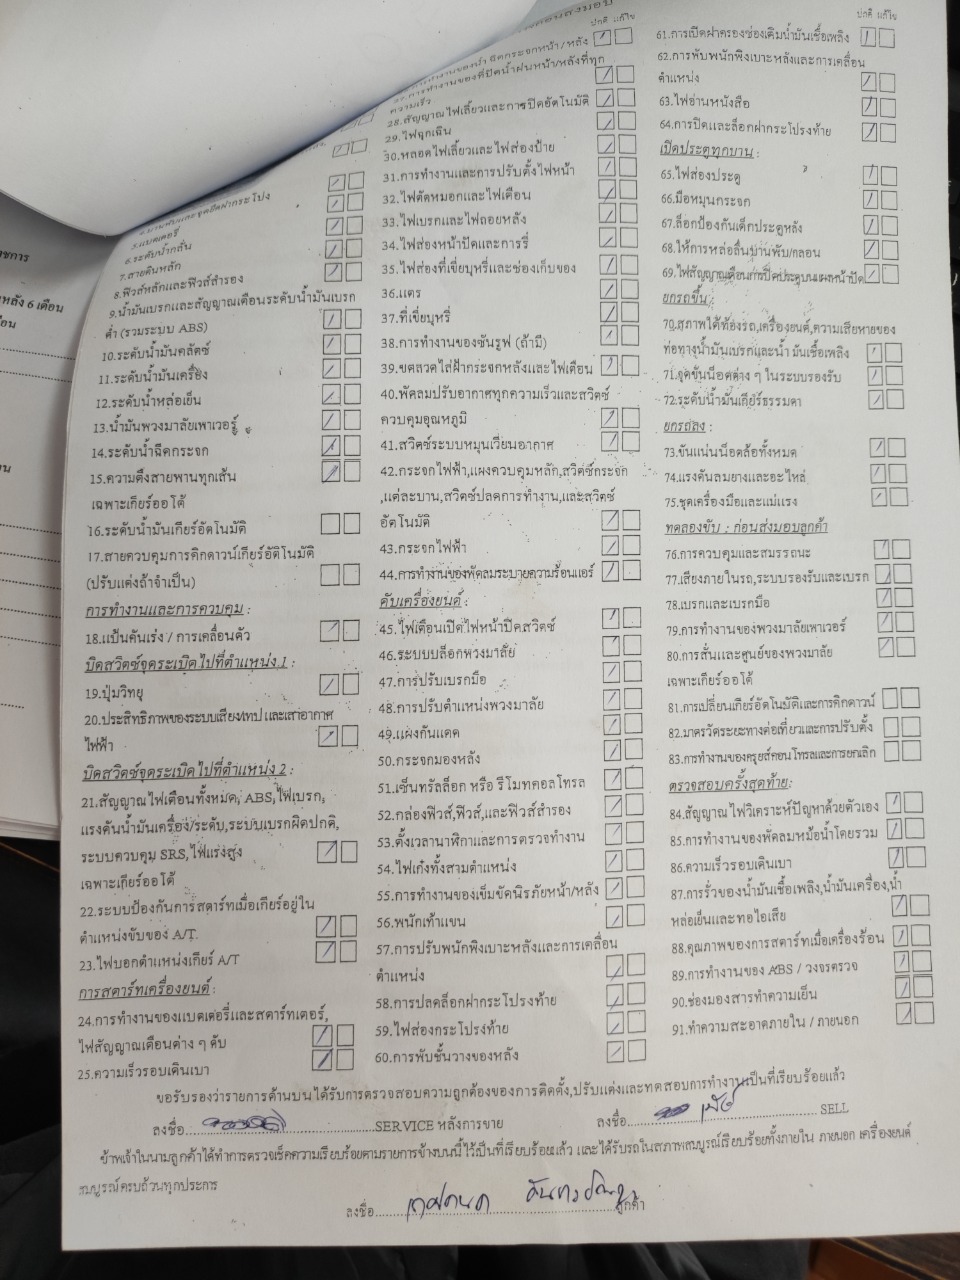 ก่อนส่งมอบ
ปกติ แก้ไข
ฉีดกระจกหน้า/หลัง
การทำงานของที่ปัดน้ำฝนหน้า/หลังที่ทุก
ความเร็ว
28.สัญญาณไฟเลี้ยวและการปิดอัตโนมัติ
29.ไฟฉุกเฉิน
30.หลอดไฟเลี้ยวและไฟส่องป้าย
31.การทำงานและการปรับตั้งไฟหน้า
32.ไฟตัดหมอกและไฟเตือน
33.ไฟเบรกและไฟถอยหลัง
34.ไฟส่องหน้าปัดและการรี่
35.ไฟส่องที่เขี่ยบุหรี่และช่องเก็บของ
36.แตร
37.ที่เขี่ยบุหรี่
38.การทำงานของซันรูฟ (ถ้ามี)
39.ขดลวดไล่ฝ้ากระจกหลังและไฟเตือน
40.พัดลมปรับอากาศทุกความเร็วและสวิตช์
ควบคุมอุณหภูมิ
41.สวิตช์ระบบหมุนเวียนอากาศ
42.กระจกไฟฟ้า,แผงควบคุมหลัก,สวิตช์กระจก
,แต่ละบาน,สวิตซ์ปลดการทำงาน,และสวิตซ์
อัตโนมัติ
43.กระจกไฟฟ้า
44.การทำงานของพัดลมระบายความร้อนแอร์
ดับเครื่องยนต์ :
45.ไฟเตือนเปิดไฟหน้าปิดสวิตซ์
46.ระบบบล็อกพวงมาลัย
47.การปรับเบรกมือ
48.การปรับตำแหน่งพวงมาลัย
49.แผ่งกันแดด
50.กระจกมองหลัง
51.เซ็นทรัลล็อก หรือ รีโมทคอลโทรล
52.กล่องฟิวส์,ฟิวส์,และฟิวส์สำรอง
53.ตั้งเวลานาฬิกาและการตรวจทำงาน
54.ไฟเก๋งทั้งสามตำแหน่ง
55.การทำงานของเข็มขัดนิรภัยหน้า/หลัง
56.พนักเท้าแขน
57.การปรับพนักพิงเบาะหลังและการเคลื่อน
ตำแหน่ง
58.การปลดล็อกฝากระโปรงท้าย
59.ไฟส่องกระโปรงท้าย
60.การพับชั้นวางของหลัง
5.แบตเตอรี่
6.ระดับน้ำกลั่น
7.สายดินหลัก
8.ฟิวส์หลักและฟิวส์สำรอง
9.น้ำมันเบรกและสัญญาณเตือนระดับน้ำมันเบรก
ต่ำ (รวมระบบ ABS)
10.ระดับน้ำมันคลัตซ์
11.ระดับน้ำมันเครื่อง
12.ระดับน้ำหล่อเย็น
13.น้ำมันพวงมาลัยเพาเวอร์
14.ระดับน้ำฉีดกระจก
15.ความตึงสายพานทุกเส้น
เฉพาะเกียร์ออโต้
16.ระดับน้ำมันเกียร์อัตโนมัติ
17.สายควบคุมการคิกดาวน์เกียร์อัติโนมัติ
(ปรับแต่งถ้าจำเป็น)
การทำงานและการควบคุม :
18.แป้นคันเร่ง / การเคลื่อนตัว
บิดสวิตช์จุดระเบิดไปที่ตำแหน่ง 1 :
19.ปุ่มวิทยุ
20.ประสิทธิภาพของระบบเสียง/เทป และเสาอากาศ
ไฟฟ้า
บิดสวิตซ์จุดระเบิดไปที่ตำแหน่ง 2 :
21.สัญญาณไฟเตือนทั้งหมด, ABS,ไฟเบรก,
แรงดันน้ำมันเครื่อง/ระดับ,ระบบเบรกผิดปกติ,
ระบบควบคุม SRS,ไฟแรงสูง
เฉพาะเกียร์ออโต้
22.ระบบป้องกันการสตาร์ทเมื่อเกียร์อยู่ใน
ตำแหน่งขับของ A/T.
23.ไฟบอกตำแหน่งเกียร์ A/T
การสตาร์ทเครื่องยนต์ :
24.การทำงานของแบตเตอรี่และสตาร์ทเตอร์,
ไฟสัญญาณเตือนต่าง ๆ ดับ
25.ความเร็วรอบเดินเบา
ปกติ แก้ไข
61.การเปิดฝาครองช่องเติมน้ำมันเชื้อเพลิง
62.การพับพนักพิงเบาะหลังและการเคลื่อน
ตำแหน่ง
63.ไฟอ่านหนังสือ
64.การปิดและล็อกฝากระโปรงท้าย
เปิดประตูทุกบาน :
65.ไฟส่องประตู
66.มือหมุนกระจก
67.ล็อกป้องกันเด็กประตูหลัง
68.ให้การหล่อลื่นบานพับ/กลอน
69.ไฟสัญญาณเตือนการปิดประตูบนแผลหน้าปัด
ยกรถขึ้น :
70.สุภาพใต้ท้องรถ,เครื่องยนต์,ความเสียหายของ
ท่อทางน้ำมันเบรกและน้ำ มันเชื้อเพลิง
71.จุดขันน็อตต่าง ๆ ในระบบรองรับ
72.ระดับน้ำมันเกียร์ธรรมดา
ยกรถลง :
73.ขันแน่นน็อตล้อทั้งหมด
74.แรงดันลมยางและอะไหล่
75.ชุดเครื่องมือและแม่แรง
ทดลองขับ : ก่อนส่งมอบลูกค้า
76.การควบคุมและสมรรถนะ
77.เสียงภายในรถ,ระบบรองรับและเบรก
78.เบรกและเบรกมือ
79.การทำงานของพวงมาลัยเพาเวอร์
80.การสั่นและศูนย์ของพวงมาลัย
เฉพาะเกียร์ออโต้
81.การเปลี่ยนเกียร์อัตโนมัติและการคิกดาวน์
82.มาตรวัดระยะทางต่อเที่ยวและการปรับตั้ง
83.การทำงานของครุยส์คอนโทรลและการยกเลิก
ตรวจสอบครั้งสุดท้าย:
84.สัญญาณ ไฟวิเคราะห์ปัญหาด้วยตัวเอง
85.การทำงานของพัดลมหม้อน้ำโดยรวม
86.ความเร็วรอบเดินเบา
87.การรั่วของน้ำมันเชื้อเพลิง,น้ำมันเครื่อง,น้ำ
หล่อเย็นและทอไอเสีย
88.คุณภาพของการสตาร์ทเมื่อเครื่องร้อน
89.การทำงานของ ABS / วงจรตรวจ
90.ช่องมองสารทำความเย็น
91.ทำความสะอาดภายใน / ภายนอก
ขอรับรองว่ารายการด้านบนได้รับการตรวจสอบความถูกต้องของการติดตั้ง,ปรับแต่งและทดสอบการทำงานเป็นที่เรียบร้อยแล้ว
ลงชื่อ SERVICE หลังการขาย ลงชื่อ SELL
ข้าพเจ้าในนามลูกค้าได้ทำการตรวจเช็คความเรียบร้อยตามรายการข้างบนนี้ไว้เป็นที่เรียบร้อยแล้ว และได้รับรถในสภาพสมบูรณ์เรียบร้อยทั้งภายใน ภายนอก เครื่องยนต์
สมบูรณ์ครบถ้วนทุกประการ
ลงชื่อ ลูกค้า